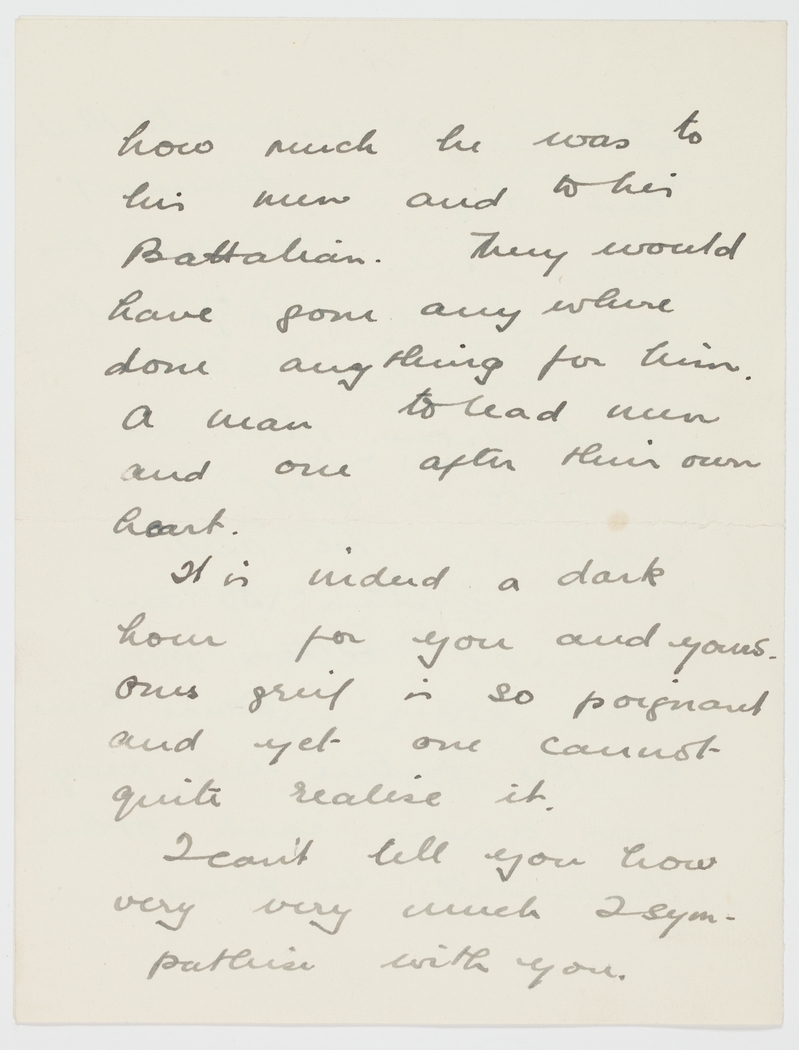 how much he was to
his men and to his
Battalian. They would
have gone any where
done anything for him.
A man to lead men
and one after their own
heart.
It is indeed a dark
hour for you and yours.
Ones greif is so poignant
and yet one cannot
quite realise it.
I can't tell you how
very very much I sym-
pathise with you.